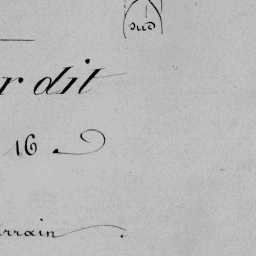 sud
r dit
16
rrain.